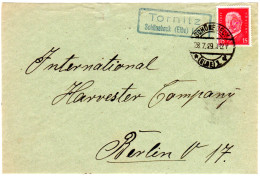 Tornitz
Schönebeck (Elbe)
28.7.29
15
International
Harvester Company
Berlin O 17.